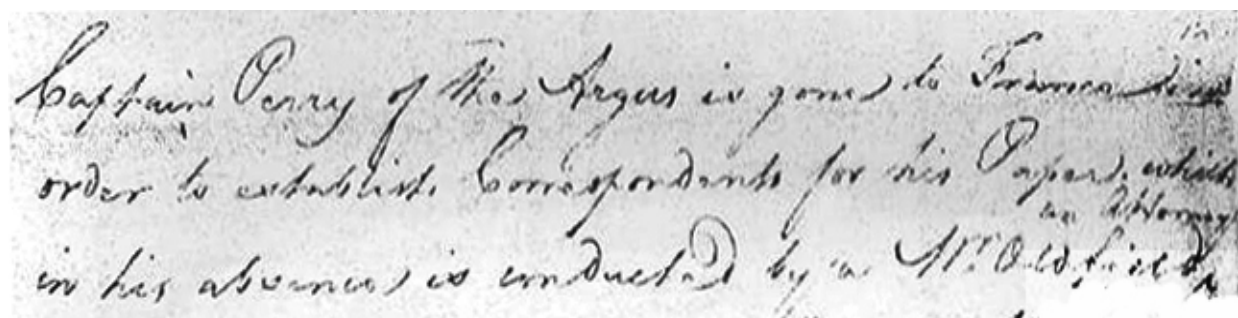 Captain Perry of the Argus is gone to France in
order to establish Correspondents for his Paper, which
an Attorney
in his absence is conducted by a Mr. Oldfield,